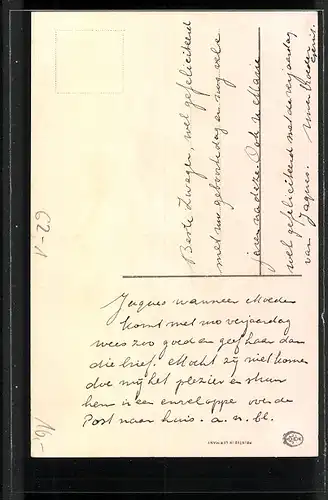 Beste Zwager, wel gefeliciteerd
met uw geboortedag en nog vele
jaren na deze. Ook u Marie
wel gefeliciteerd met de verjaardag
van Jaques. Uwe Broeder
Jaques wanneer Moeder
komt met uw verjaardag
wees zoo goed en geef haar dan
die brief. Mocht zij niet komen
doe mij het plezier en stuur
hem in een enveloppe over de
Post naar huis. a. u. bl.
62-1
16,-